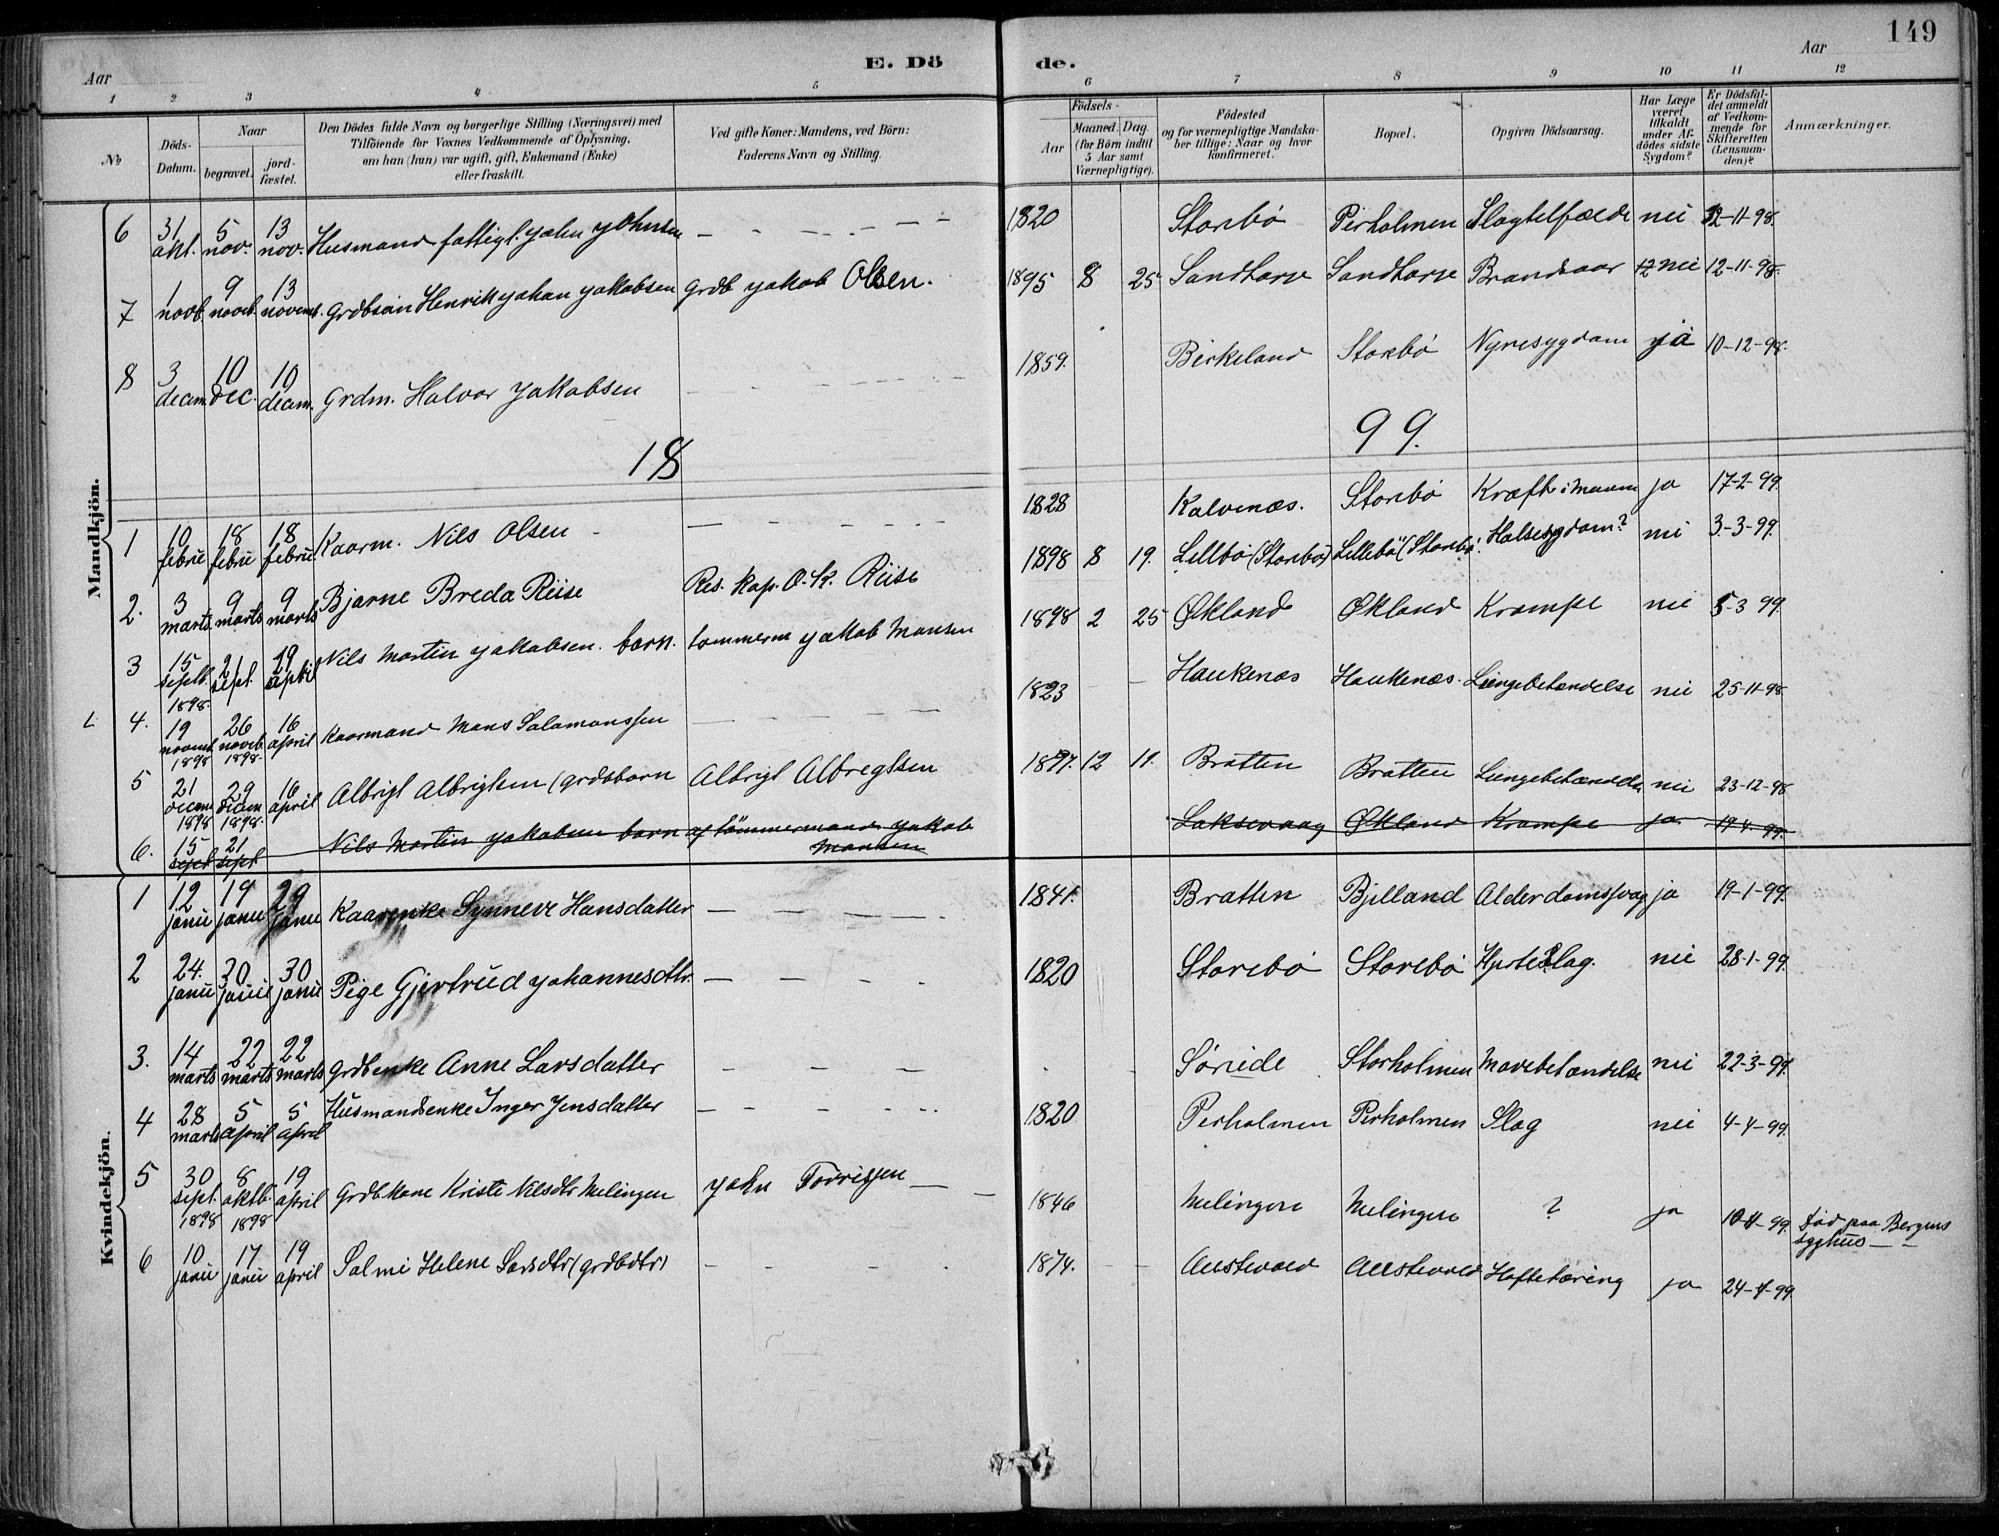 149
E. Dö de.
Aar Aar
1 2 3 4 5 6 7 8 9 10 11 12
No
Döds-Datum.
Naar
begravet. jord-fæstet.
Den Dödes fulde Navn og borgerlige Stilling (Næringsvei) med
Tilföiende for Voxnes Vedkommende af Oplysning,
om han (hun) var ugift, gift, Enkemand (Enke)
eller fraskilt.
Ved gifte Koner: Mandens, ved Börn:
Faderens Navn og Stilling.
Födsels-
Aar
Maaned. Dag.
(for Börn indtil
5 Aar samt
Værnepligtige).
Födested
og for værnepligtige Mandska-
ber tillige: Naar og hvor
konfirmeret.
Bopæl.
Opgiven Dödsaarsag.
Har Læge
været
tilkaldt
under Af-
dödes sidste
Sygdom?
Er Dödsfal-
det anmeldt
af Vedkom-
mende for
Skifteretten
(Lensman-
den)?
Anmærkninger.
Mandkjön.
6 31 okt. 5 nov. 13 nov. Husmand fattigl. John Johnsen — — — 1820 Storebø Perholmen Slagtilfælde nei 12-11-98.
7 1 novb. 9 novb. 13 novemb. Grdbsøn Henrik Johan Jakobsen Grdb Jakob Olsen. 1895 8 25 Sandtorse Sandtorse Brandsaar nei 12-11-98.
8 3 decem. 10 dec. 10 decem. Grdm. Halvor Jakobsen — — — 1859. Birkeland Storebø Nyresygdom ja 10-12-98.
18 99.
1 10 febru 18 febru 18 febru Kaarm. Nils Olsen — — — 1828 Kalvenæs. Storebø Kræft i Maven ja 17-2-99.
2. 3 marts 9 marts 9 marts Bjarne Breda Riise Res. Kap. O. K. Riise 1898 8 19. Lillebø (Storebø) Lillebø (Storebø. Halsesygdom? nei 3-3-99.
3 15 septb. 1898. 21 sept. 29 april Nils Martin Jakobsen. barn. tømmerm Jakob Monsen 1898 2 25 Økland Økland Krampe nei 5-3 99.
L. 4. 19 novemb. 1898 26 novb. 1898. 16 april Kaarmand Mons Salamonssen — — — 1823 — — Haukenæs Haukenæs. Lungebetændelse nei 25-11-98.
5 21 decem 1898 29 decem 1898. 16 april Albrigt Albrigtsen (grdbbarn Albrigt Albregtsen 1897. 12 11. Bratten Bratten Lungebetændelse nei 23-12-98
6. 15 sept 21 sept Nils Martin Jakobsen barn af tömmermand Jakob Monsen Laksevaag Økland Krampe ja 19 4 99.
Kvindekjön.
1 12 janu 19 janu 29 janu Kaarenke Synneve Hansdatter — — — 1841. Bratten Bjelland Alderdomssvag ja 19-1-99.
2 24. janu 30 janu 30 janu Pige Gjertrud Johannesdtr. — — — 1820 Storebø Storebø Hjerteslag. nei 28-1-99.
3. 14 marts 22 marts 22 marts Grdbenke Anne Larsdatter — — — Søreide Storholmen Mavebetændelse nei 22-3-99.
4 28 marts 5 april 5 april Husmandsenke Inger Jensdatter — — — 1820 Perholmen Perholmen Slag nei 4-4-99.
5 30 sept. 1898 8 oktb. 1898 19 april Grdb.kone Kriste Nilsdtr Melingen John Torrissen — — 1846 Melingen Melingen ? ja 10-4-99. død paa Bergens sygehus — —
6 10 janu 17 janu 19 april Salmi Helene Larsdtr (grdbdtr) — — — 1874. — — Austevold Austevold Hoftetæring ja 24-4-99.